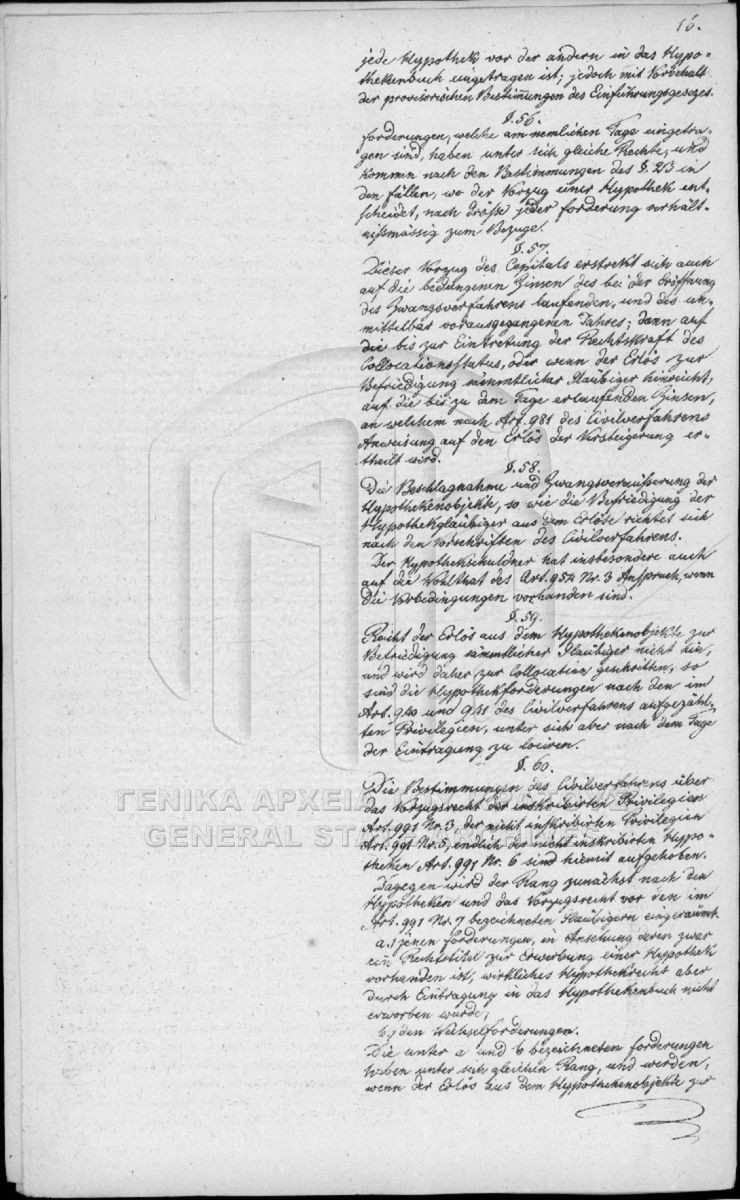 16.
jede Hypothek vor der andern in das Hypo=
thekenbuch eingetragen ist; jedoch mit Vorbehalt
der provisorischen Bestim̄ungen des Einführungsgesezes.
§. 56.
Forderungen, welche am nemlichen Tage eingetra=
gen sind, haben unter sich gleiche Rechte, und
kommen nach den Bestimmungen des §. 23 in
den Fällen, wo der Vorzug einer Hypothek ent=
scheidet, nach Größe jeder Forderung verhält=
nißmässig zum Bezuge.
§. 57.
Dieser Vorzug des Capitals erstrekt sich auch
auf die bedungenen Zinsen des bei der Eröffnung
des Zwangsverfahrens laufenden, und des un=
mittelbar vorausgegangenen Jahres; dann auf
die bis zur Eintretung der Rechtskraft des
Collocationsstatus, oder wenn der Erlös zur
Befriedigung sämmtlicher Gläubiger hinreicht,
auf die bis zu dem Tage erlaufenden Zinsen,
an welchem nach Art. 981 des Civilverfahrens
Anweisung auf den Erlös der Versteigerung er=
theilt wird.
§. 58.
Die Beschlagnahme und Zwangsveräußerung der
Hypothekenobjekte, so wie die Befriedigung der
Hypothekgläubiger aus dem Erlöse richtet sich
nach den Vorschriften des Civilverfahrens.
Der Hypothekschuldner hat insbesondere auch
auf die Wohlthat des Art. 954 Nr. 3 Anspruch, wenn
die Vorbedingungen vorhanden sind.
§. 59.
Reicht der Erlös aus dem Hypothekenobjekte zur
Befriedigung sämmtlicher Gläubiger nicht hin,
und wird daher zur Collocation geschritten, so
sind die Hypothekforderungen nach den im
Art. 940 und 941 des Civilverfahrens aufgezähl=
ten Privilegien, unter sich aber nach dem Tage
der Eintragung zu lociren.
§. 60.
Die Bestimmungen des Civilverfahrens über
das Vorzugsrecht der inskribirten Privilegien
Art. 991 Nr. 3, der nicht inskribirten Privilegien
Art. 991 Nr. 5, endlich der nicht inskribirten Hypo=
theken Art. 991 Nr. 6 sind hiemit aufgehoben.
Dagegen wird der Rang zunächst nach den
Hypotheken und das Vorzugsrecht vor den im
Art. 991 Nr. 7 bezeichneten Gläubigern eingeräumt.
a.) jenen Forderungen, in Ansehung deren zwar
ein Rechtstitel zur Erwerbung einer Hypothek
vorhanden ist, wirkliches Hypothekrecht aber
durch Eintragung in das Hypothekenbuch nicht
erworben wurde;
b.) den Wechselforderungen.
Die unter a und b bezeichneten Forderungen
haben unter sich gleichen Rang, und werden,
wenn der Erlös aus dem Hypothekenobjekte zur
ΓΕΝΙΚΑ ΑΡΧΕΙΑ
GENERAL STATE ARCHIVES